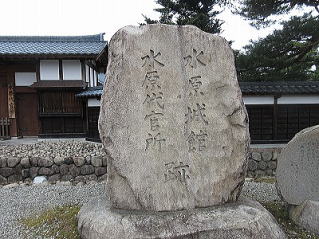 水原城館
水原代官所
跡